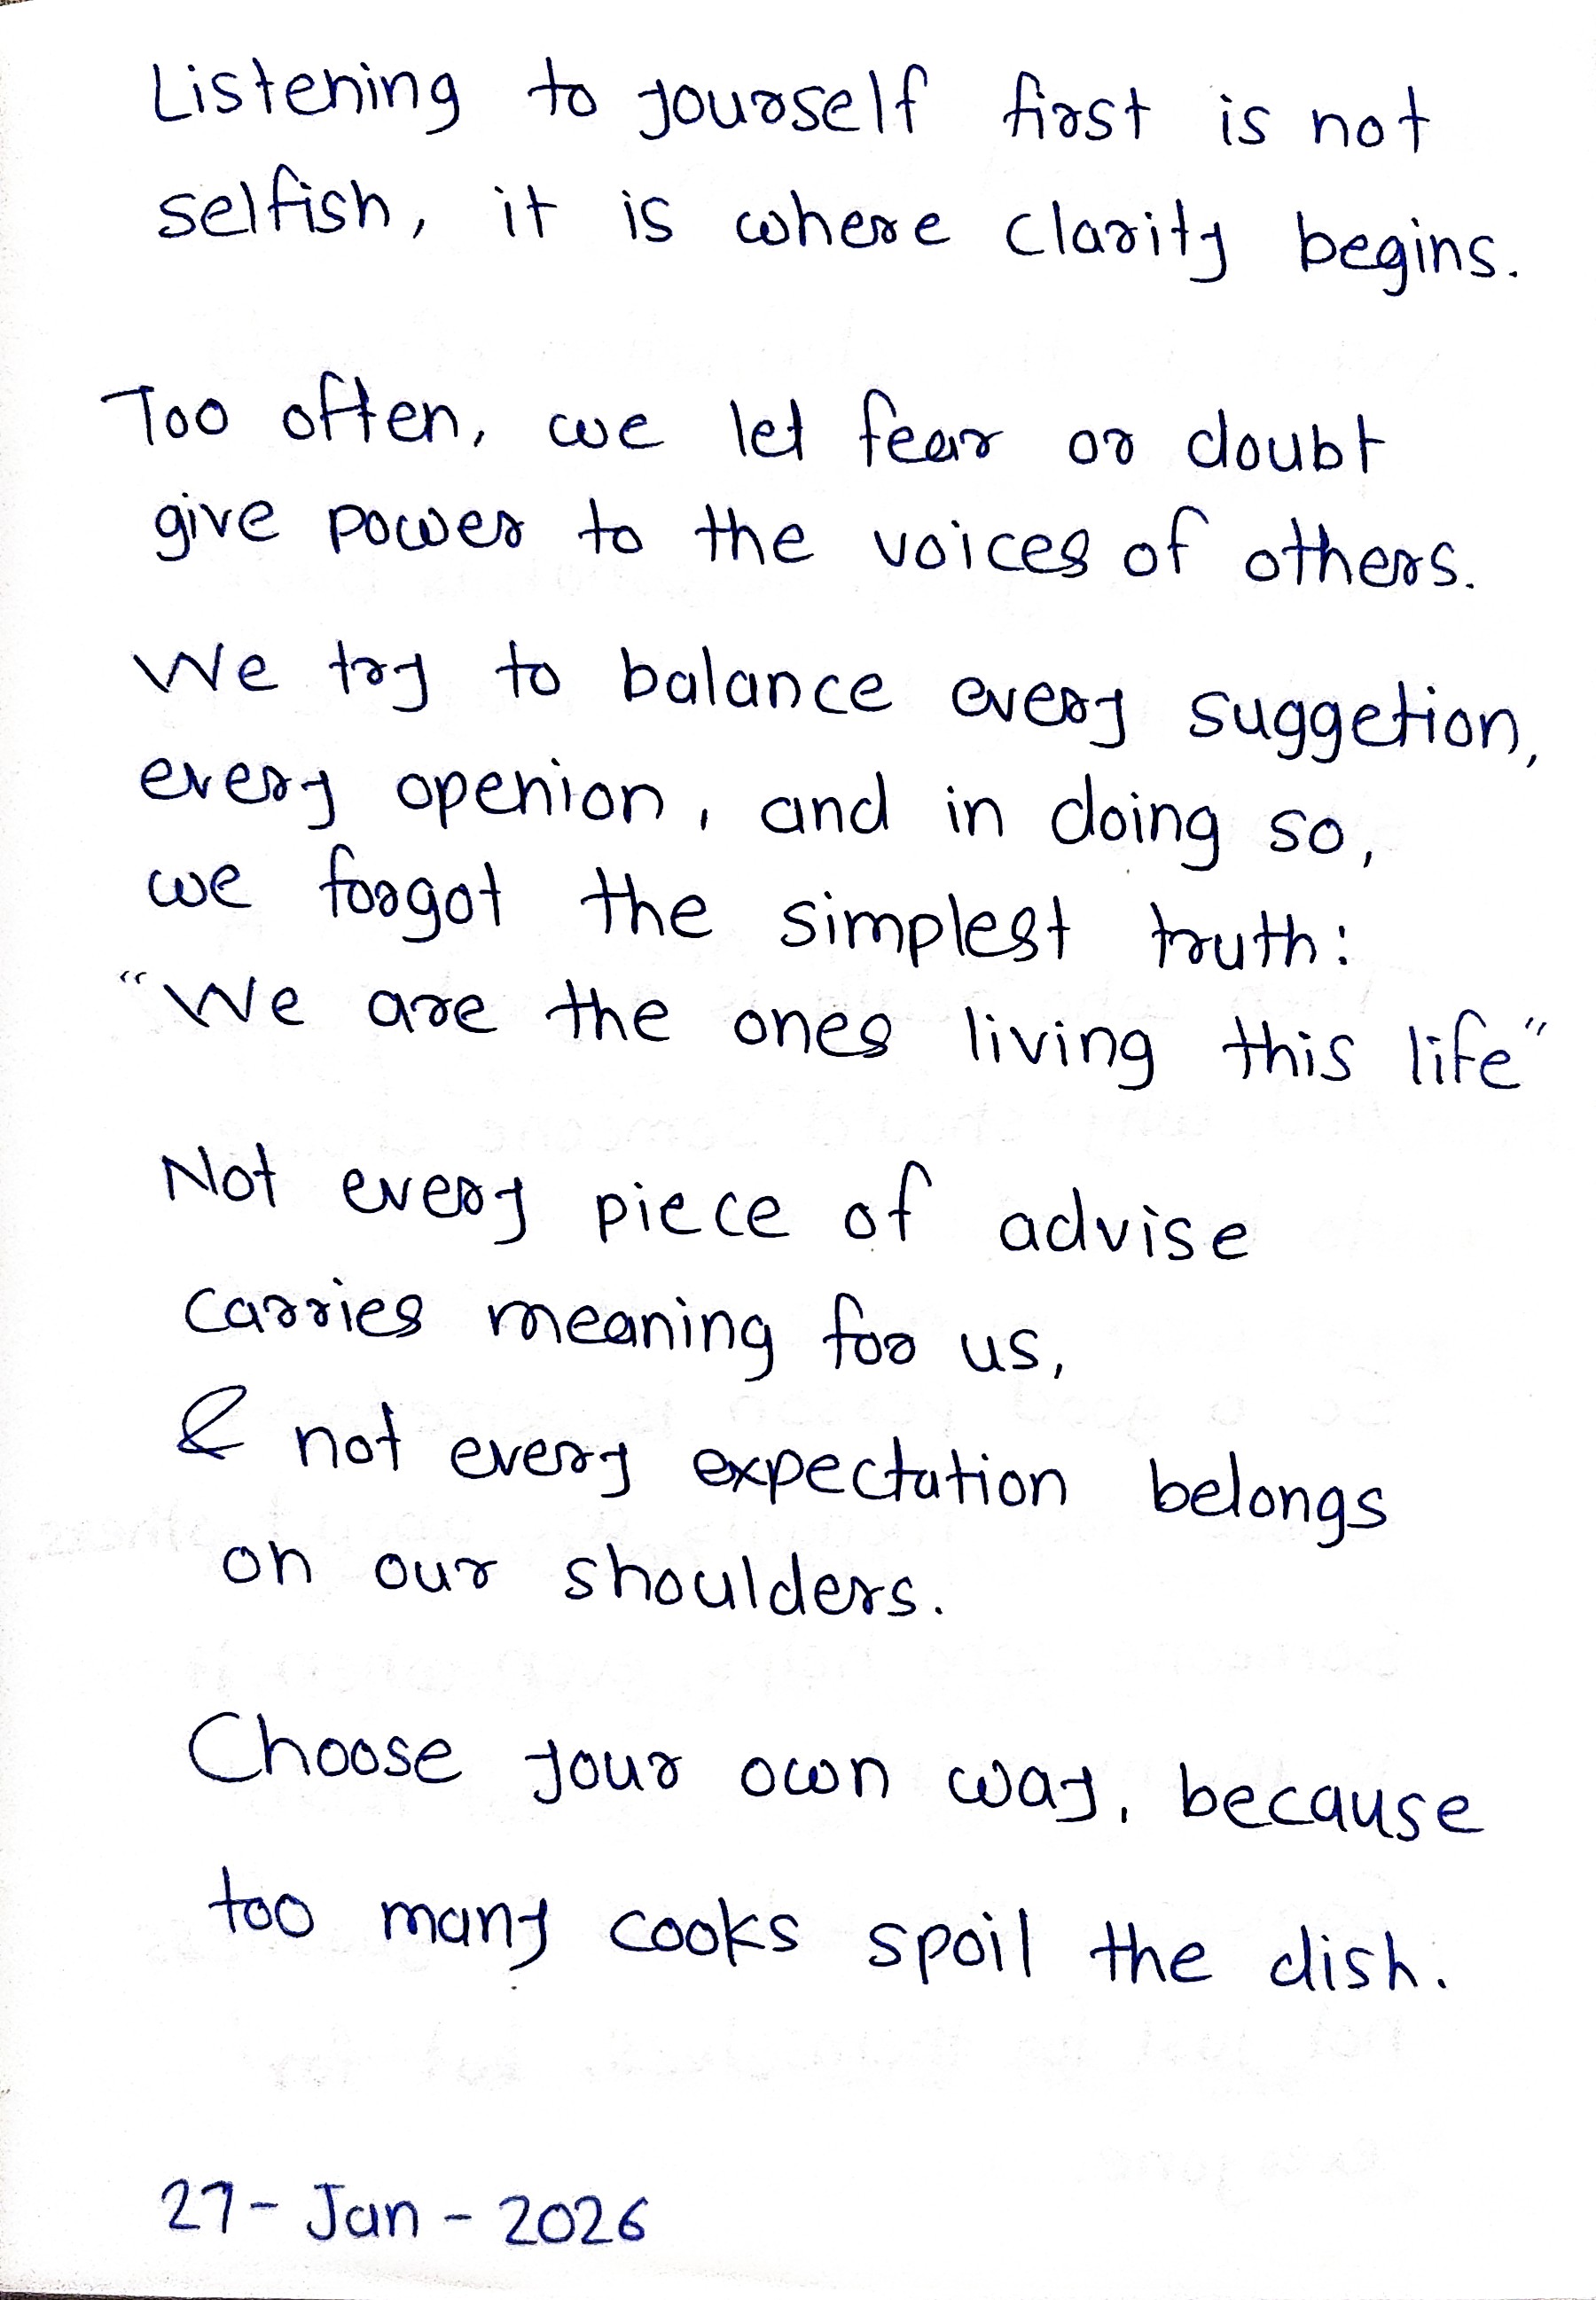 Listening to yourself first is not
selfish, it is where clarity begins.
Too often, we let fear or doubt
give power to the voices of others.
We try to balance every suggetion,
every openion, and in doing so,
we forgot the simplest truth:
"We are the ones living this life"
Not every piece of advise
carries meaning for us,
& not every expectation belongs
on our shoulders.
Choose your own way, because
too many cooks spoil the dish.
27-Jan-2026